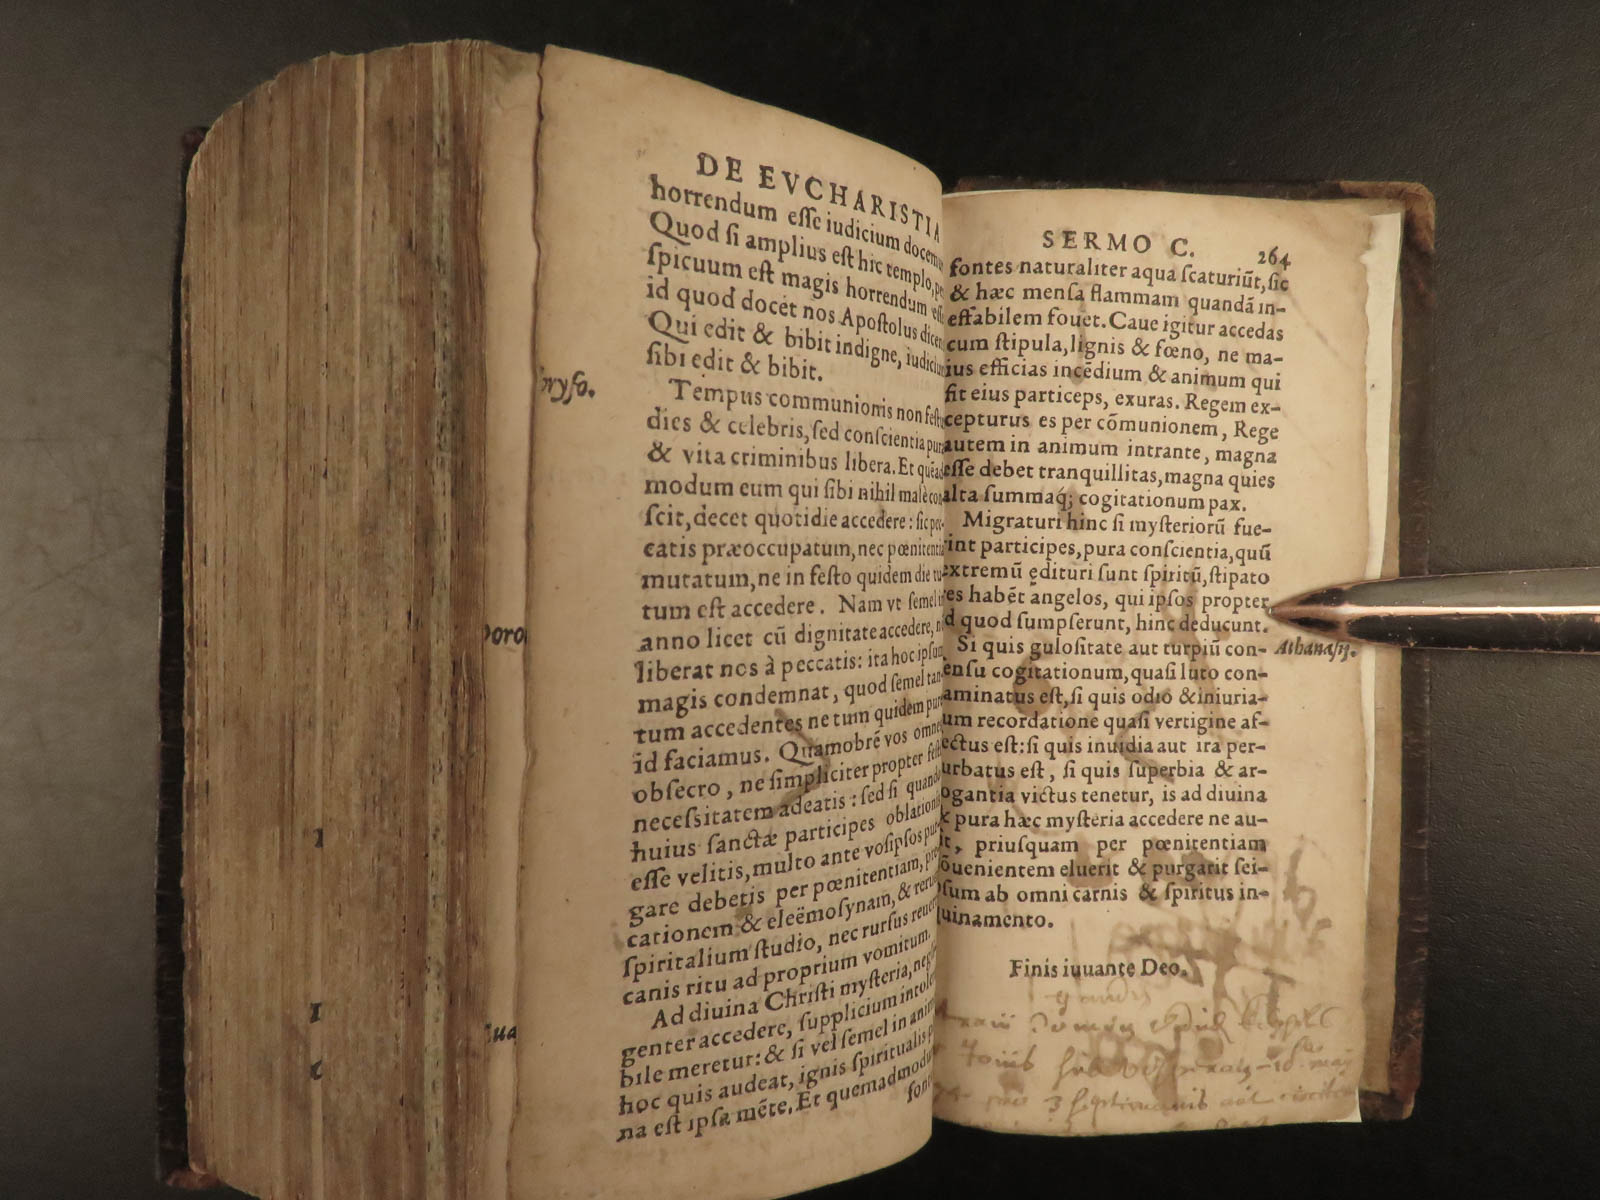 DE EVCHARISTIA
horrendum eſſe iudicium docem
Quod ſi amplius eſt hic templo, pe
ſpicuum eſt magis horrendum eſſe
id quod docét nos Apoſtolus dicen
Qui edit & bibit indigne, iudiciu
ſibi edit & bibit.
Tempus communionis non feſtu
dies & celebris, ſed conſcientia pura
& vita criminibus libera. Et quēad
modum eum qui ſibi nihil malè con
ſcit, decet quotidie accedere: ſic pec-
catis præoccupatum, nec pœnitentia
mutatum, ne in feſto quidem die tu
tum eſt accedere. Nam vt ſemel in
anno licet cū dignitate accedere, n
liberat nos à peccatis: ita hoc ipſum
magis condemnat, quod ſemel tan
tum accedentes ne tum quidem pure
id faciamus. Quamobrē vos omnes
obſecro, ne ſimpliciter propter feſti
neceſsitatem adeatis: ſed ſi quando
huius ſanctæ participes oblationis
eſſe velitis, multo ante voſipſos pur
gare debetis per pœnitentiam, pre
cationem & eleëmoſynam, & rerum
ſpiritalium ſtudio, nec rurſus reuer
canis ritu ad proprium vomitum.
Ad diuina Chriſti myſteria, negli
genter accedere, ſupplicium intole
bile meretur: & ſi vel ſemel in anim
hoc quis audeat, ignis ſpiritualis p
na eſt ipſa mēte. Et quemadmodu
fon
SERMO C. 264
fontes naturaliter aqua ſcaturiūt, ſic
& hæc menſa flammam quandā in-
effabilem fouet. Caue igitur accedas
cum ſtipula, lignis & fœno, ne ma-
ius efficias incēdium & animum qui
fit eius particeps, exuras. Regem ex-
cepturus es per cōmunionem, Rege
autem in animum intrante, magna
eſſe debet tranquillitas, magna quies
alta ſummaq́; cogitationum pax.
Migraturi hinc ſi myſteriorū fue-
rint participes, pura conſcientia, quū
extremū ędituri ſunt ſpiritū, ſtipato
es habēt angelos, qui ipſos propter
d quod ſumpſerunt, hinc deducunt.
Si quis guloſitate aut turpiū con-
Athanaſij.
enſu cogitationum, quaſi luto con-
aminatus eſt, ſi quis odio & iniuria-
um recordatione quaſi vertigine af-
ectus eſt: ſi quis inuidia aut ira per-
urbatus eſt, ſi quis ſuperbia & ar-
ogantia victus tenetur, is ad diuina
& pura hæc myſteria accedere ne au-
it, priuſquam per pœnitentiam
ōuenientem eluerit & purgarit ſei-
ſum ab omni carnis & ſpiritus in-
uinamento.
Finis iuuante Deo.